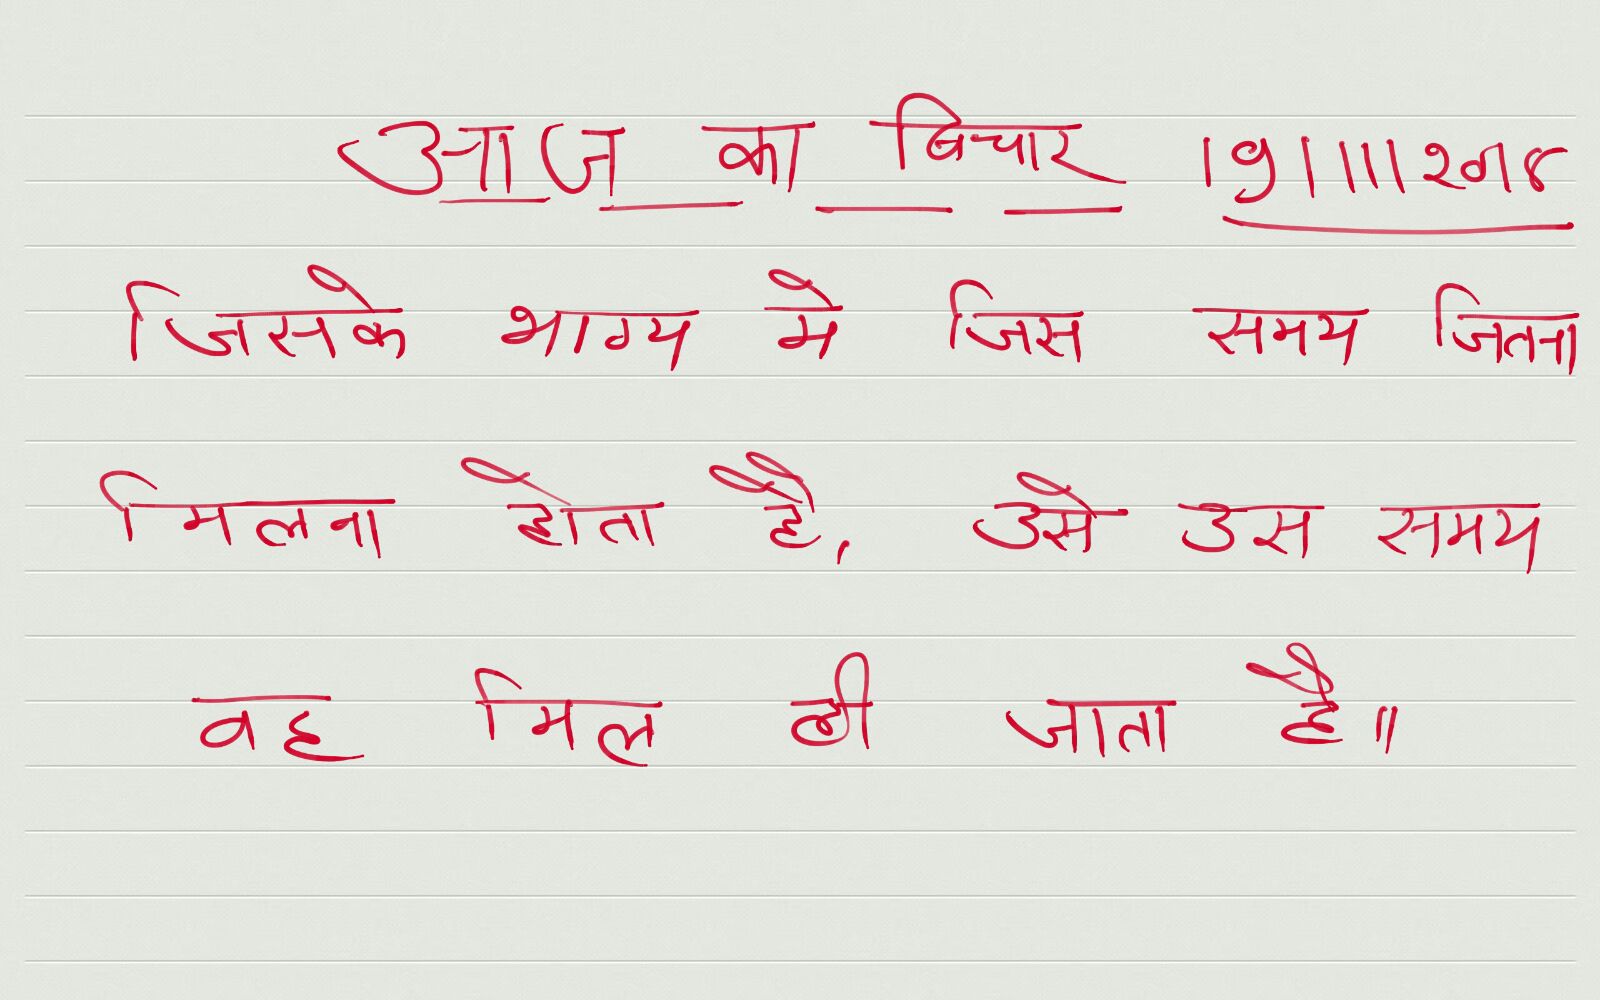 आज का बिचार
जिसके भाग्य मे जिस समय जितना
मिलना होता है, उसे उस समय
वह मिल बी जाता है॥